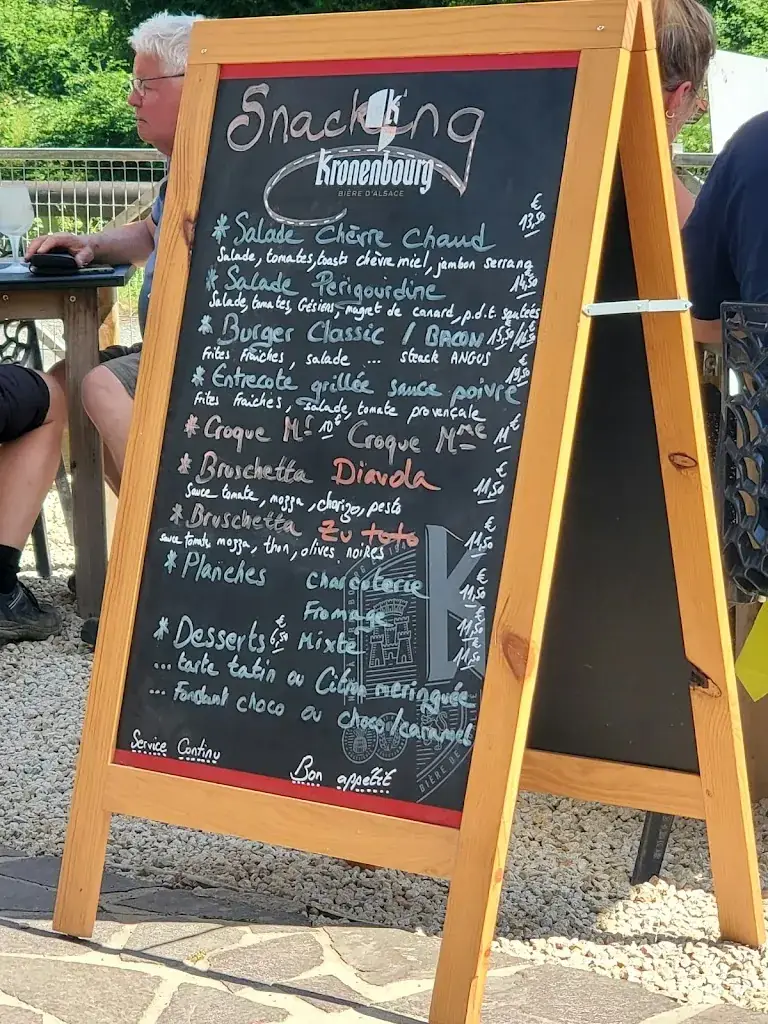 Snacking
K
Kronenbourg
BIÈRE D'ALSACE
* Salade chèvre chaud 13,50 €
Salade, tomates, toasts chèvre miel, jambon serrano
* Salade Périgourdine 14,50 €
Salade, tomates, Gésiers, magret de canard, p.d.t. sautées
* Burger Classic / BACON 15,50/16,50 €
Frites Fraîches, salade ... steack ANGUS
* Entrecote grillée sauce poivre 19,50 €
Frites fraiches, salade, tomate provençale
* Croque Mr 10€ Croque Mme 11€
* Bruschetta Diavola 11,50 €
Sauce tomate, mozza, chorizo, pesto
* Bruschetta Zu toto 11,50 €
sauce tomate, mozza, thon, olives noires
* Planches Charcuterie 11,50 €
Fromage 11,50
* Desserts 6,50 € Mixte 11,50
... tarte tatin ou Citron meringuée
... Fondant choco ou choco/caramel
Service Continu Bon appétit
K
BIÈRE